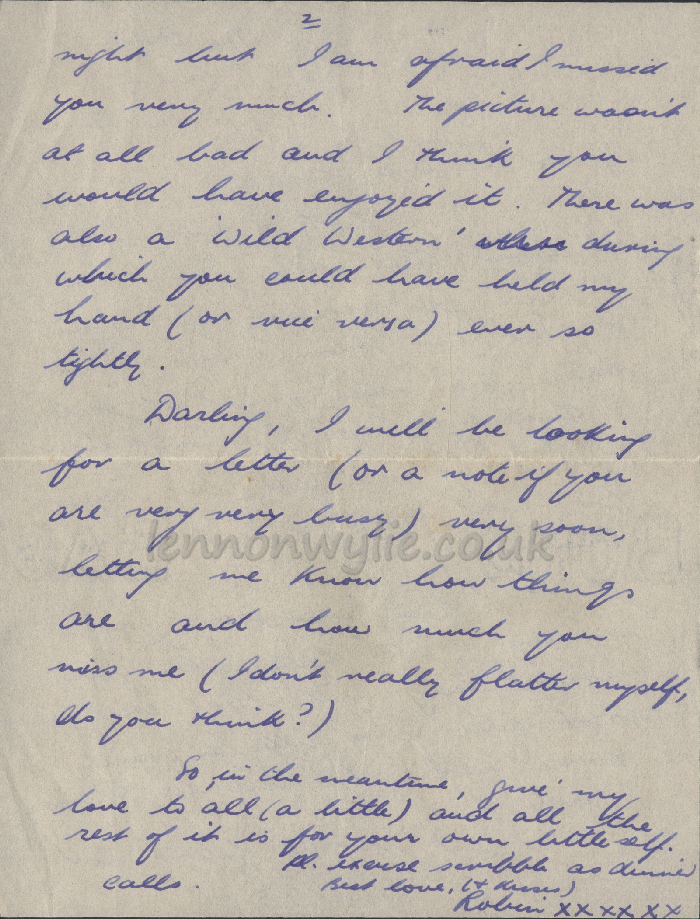 2
night but I am afraid I missed
you very much. The picture wasn't
at all bad and I think you
would have enjoyed it. There was
also a 'Wild Western' during
which you could have held my
hand (or vice versa) ever so
tightly.
Darling, I will be looking
for a letter (or a note if you
are very very busy) very soon,
lennonwylie.co.uk
letting me know how things
are and how much you
miss me (I don't really flatter myself,
do you think?)
So, in the meantime, give my
love to all (a little) and all the
rest of it is for your own little self.
Pl. excuse scribble as dinner
calls. Best love, (+ kisses)
Robin xx xx xx